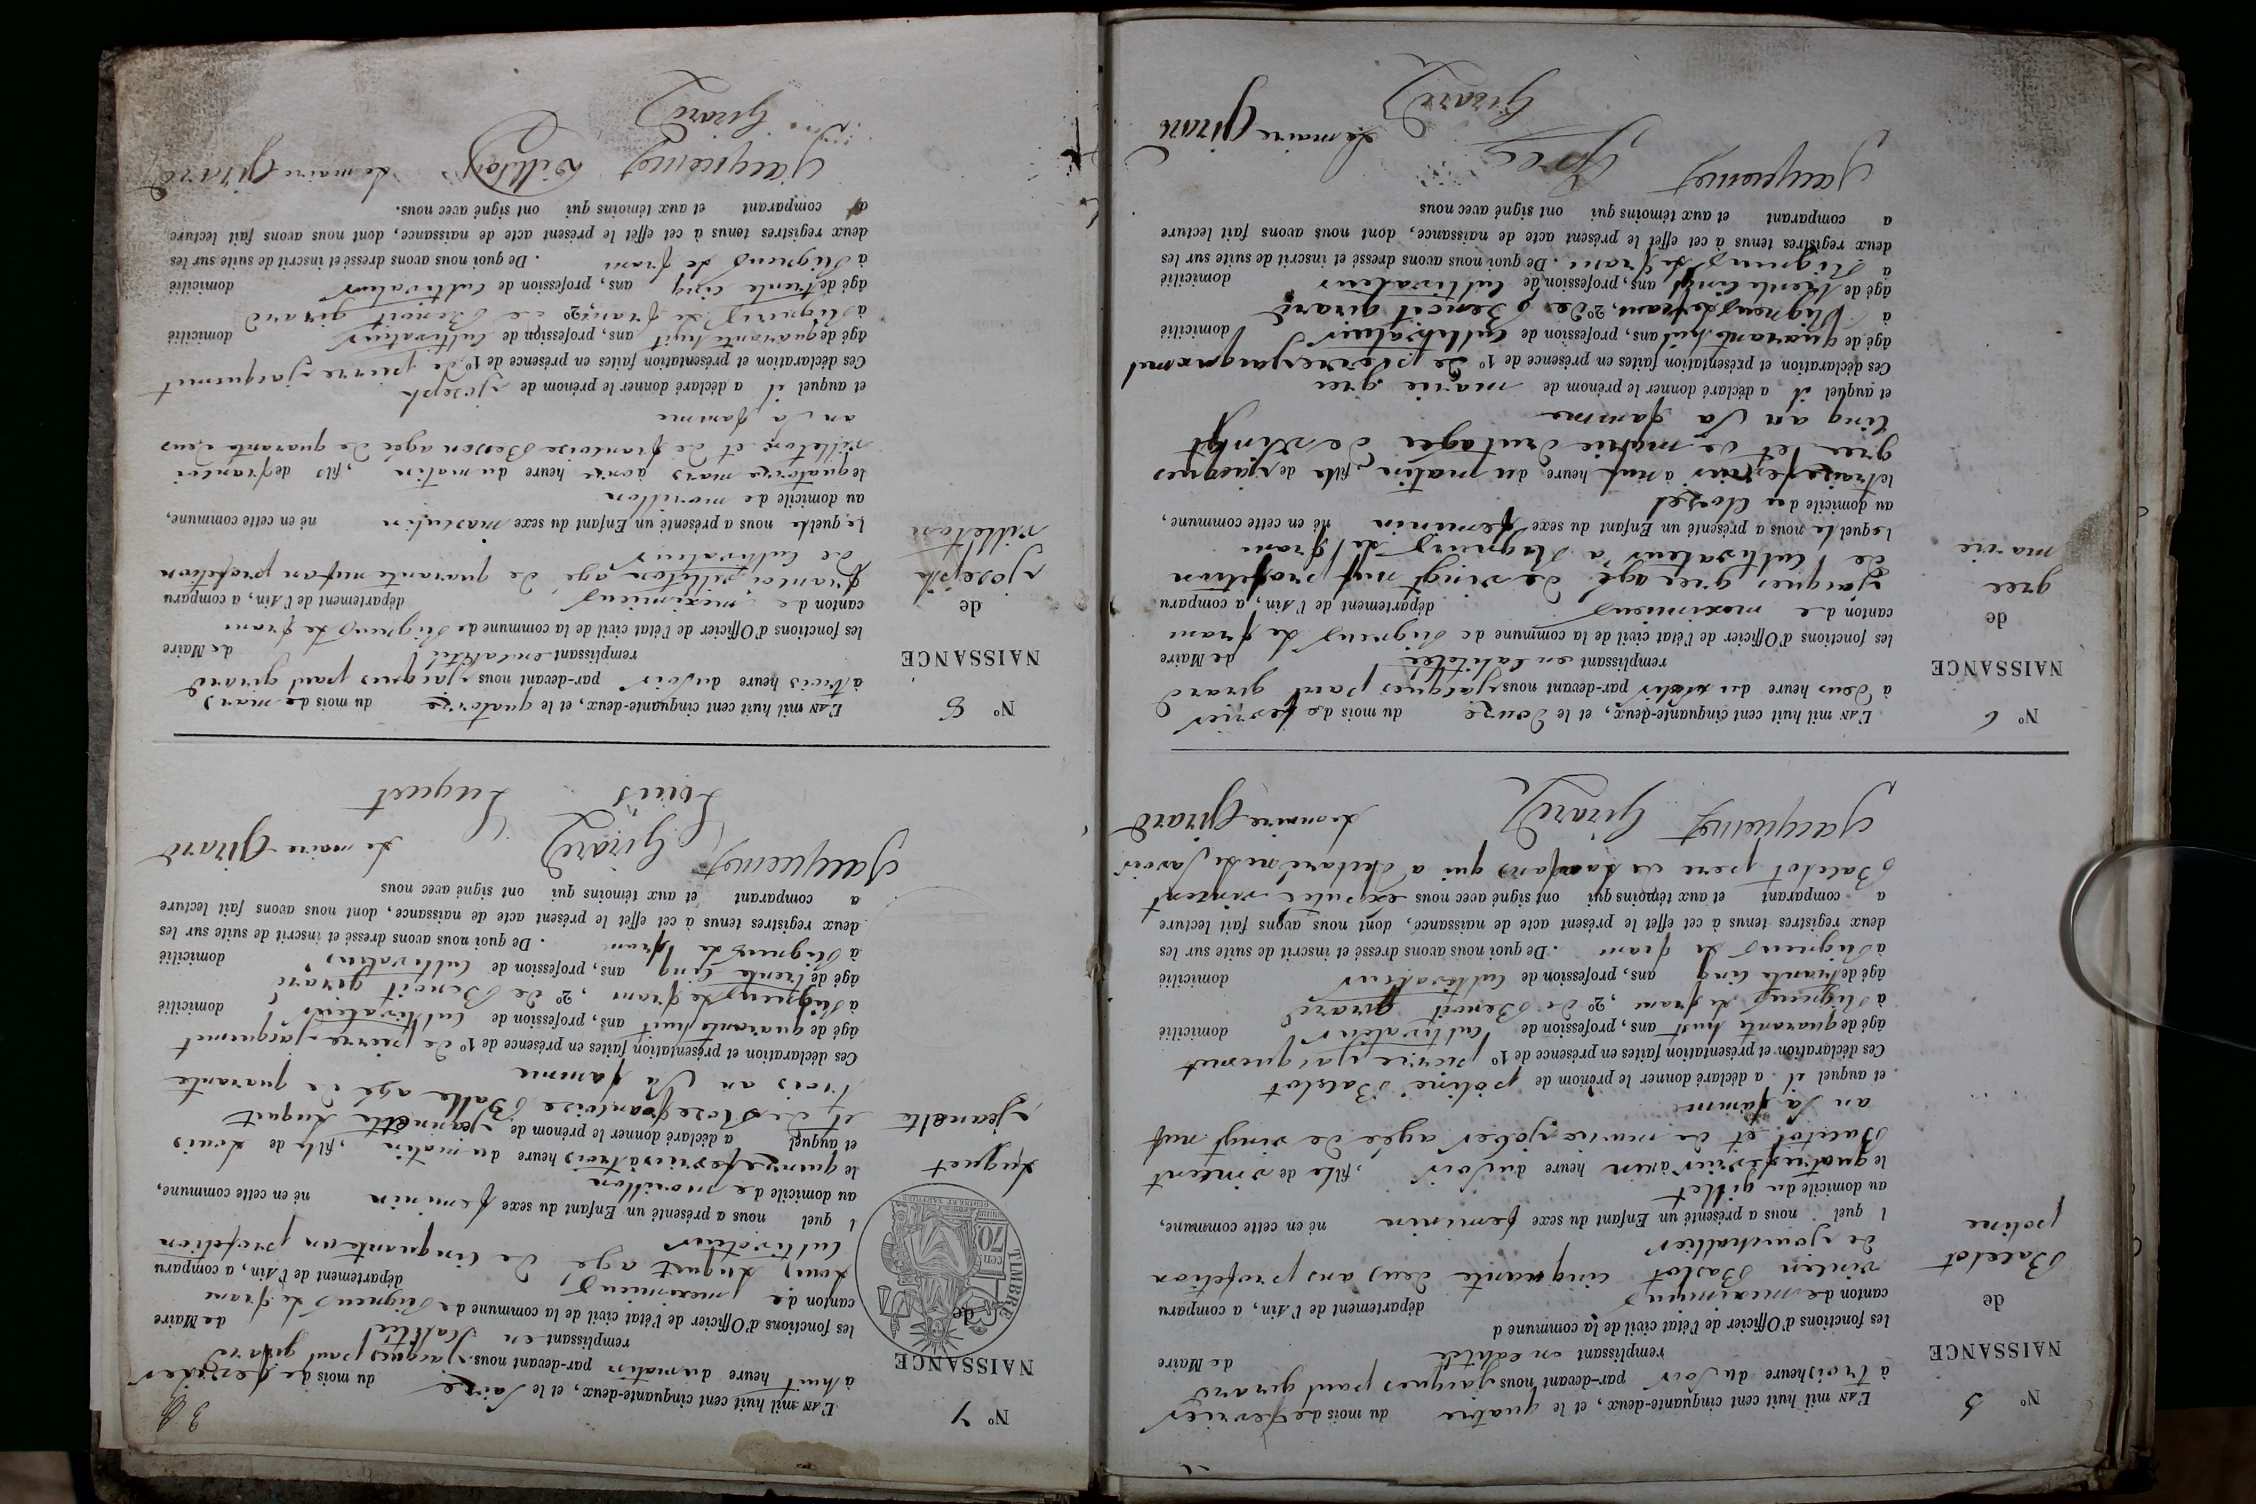 N° 5
NAISSANCE
de
Batelot
poline
L'AN mil huit cent cinquante-deux, et le quatre du mois de fevrier
à trois heure du soir par-devant nous jacques paul girard
remplissant en calité de Maire
les fonctions d'Officier de l'état civil de la commune d
canton de meximieux département de l'Ain, a comparu
vinsen Batlot cinquante deux ans profetion
de
l quel nous a présenté un Enfant du sexe feminin né en cette commune,
au domicile du gillet
le quatre fevrier à un heure du soir, fille de vincent
Batelot et de marie agée de vingt neuf
an sa famme
et auquel il a déclaré donner le prénom de poline Batelot
Ces déclaration et présentation faites en présence de 1° pierre jacquemet
âgé de quarante huit ans, profession de Cultivateur domicilié
à Rigneux le franc, 2° de Benoit girard
âgé de trante cinq ans, profession de Cultivateur domicilié
à Rigneux le franc. De quoi nous avons dressé et inscrit de suite sur les
deux registres tenus à cet effet le présent acte de naissance, dont nous avons fait lecture
a comparant et aux témoins qui ont signé avec nous excepté vincent
Batelot pere de lanfans qui a déclaré ne le savoir
Jacquemet Girard Le maire Girard
N° 6
NAISSANCE
de
gree
marie
L'AN mil huit cent cinquante-deux, et le douze du mois de fevrier
à deux heure du soir par-devant nous jacques paul girard
remplissant en calité de Maire
les fonctions d'Officier de l'état civil de la commune de Rigneux le franc
canton de meximieux département de l'Ain, a comparu
jacques gree agé de vingt neuf profetion
de Cultivateur à Rigneux le franc
lequel nous a présenté un Enfant du sexe feminin né en cette commune,
au domicile du
le fevrier à neuf heure du matin, fille de jacques
gree et de marie agée de vingt
cinq an sa famme
et auquel il a déclaré donner le prénom de marie gree
Ces déclaration et présentation faites en présence de 1° de pierre jacquemet
âgé de quarante huit ans, profession de Cultivateur domicilié
à Rigneux le franc, 2° de Benoit girard
âgé de trente cinq ans, profession de Cultivateur domicilié
à Rigneux le franc. De quoi nous avons dressé et inscrit de suite sur les
deux registres tenus à cet effet le présent acte de naissance, dont nous avons fait lecture
a comparant et aux témoins qui ont signé avec nous
Jacquemet Gree
Girard Le maire Girard
3
N° 7
NAISSANCE
de
TIMBRE
70
CEN
Luquet
jeanette
L'AN mil huit cent cinquante-deux, et le saize du mois de fevrier
à huit heure du matin par-devant nous jacques paul girard
remplissant en de Maire
les fonctions d'Officier de l'état civil de la commune de Rigneux le franc
canton de meximieux département de l'Ain, a comparu
Louis Luquet age de cinquante un profetion
Cultivateur
l quel nous a présenté un Enfant du sexe feminin né en cette commune,
au domicile de morillon
le quinze fevrier à trois heure du matin, fille de Louis
et auquel a déclaré donner le prénom de jeannette Luquet
et de francoise Balle agé de quarante
trois an sa famme
Ces déclaration et présentation faites en présence de 1° de pierre jacquemet
âgé de quarante huit ans, profession de Cultivateur domicilié
à Rigneux le franc, 2° de Benoit girard
âgé de trente cinq ans, profession de Cultivateur domicilié
à Rigneux le franc. De quoi nous avons dressé et inscrit de suite sur les
deux registres tenus à cet effet le présent acte de naissance, dont nous avons fait lecture
a comparant et aux témoins qui ont signé avec nous
Jacquemet Girard Le maire Girard
Louis Luquet
N° 8
NAISSANCE
de
joseph
villeton
L'AN mil huit cent cinquante-deux, et le quatorze du mois de mars
à trois heure du soir par-devant nous jacques paul girard
remplissant en calité de Maire
les fonctions d'Officier de l'état civil de la commune de Rigneux le franc
canton de meximieux département de l'Ain, a comparu
francoi villeton agé de quarante neuf an profetion
de Cultivateur
lequel nous a présenté un Enfant du sexe masculin né en cette commune,
au domicile de morillon
le quatorze mars à onze heure du matin, fils de francoi
villeton et de francoise Besson agée de quarante deux
an sa famme
et auquel il a déclaré donner le prénom de joseph
Ces déclaration et présentation faites en présence de 1° de pierre jacquemet
âgé de quarante huit ans, profession de Cultivateur domicilié
à Rigneux le franc, 2° de Benoit girard
âgé de trente cinq ans, profession de Cultivateur domicilié
à Rigneux le franc. De quoi nous avons dressé et inscrit de suite sur les
deux registres tenus à cet effet le présent acte de naissance, dont nous avons fait lecture
a comparant et aux témoins qui ont signé avec nous.
Jacquemet Le maire Girard
Girard